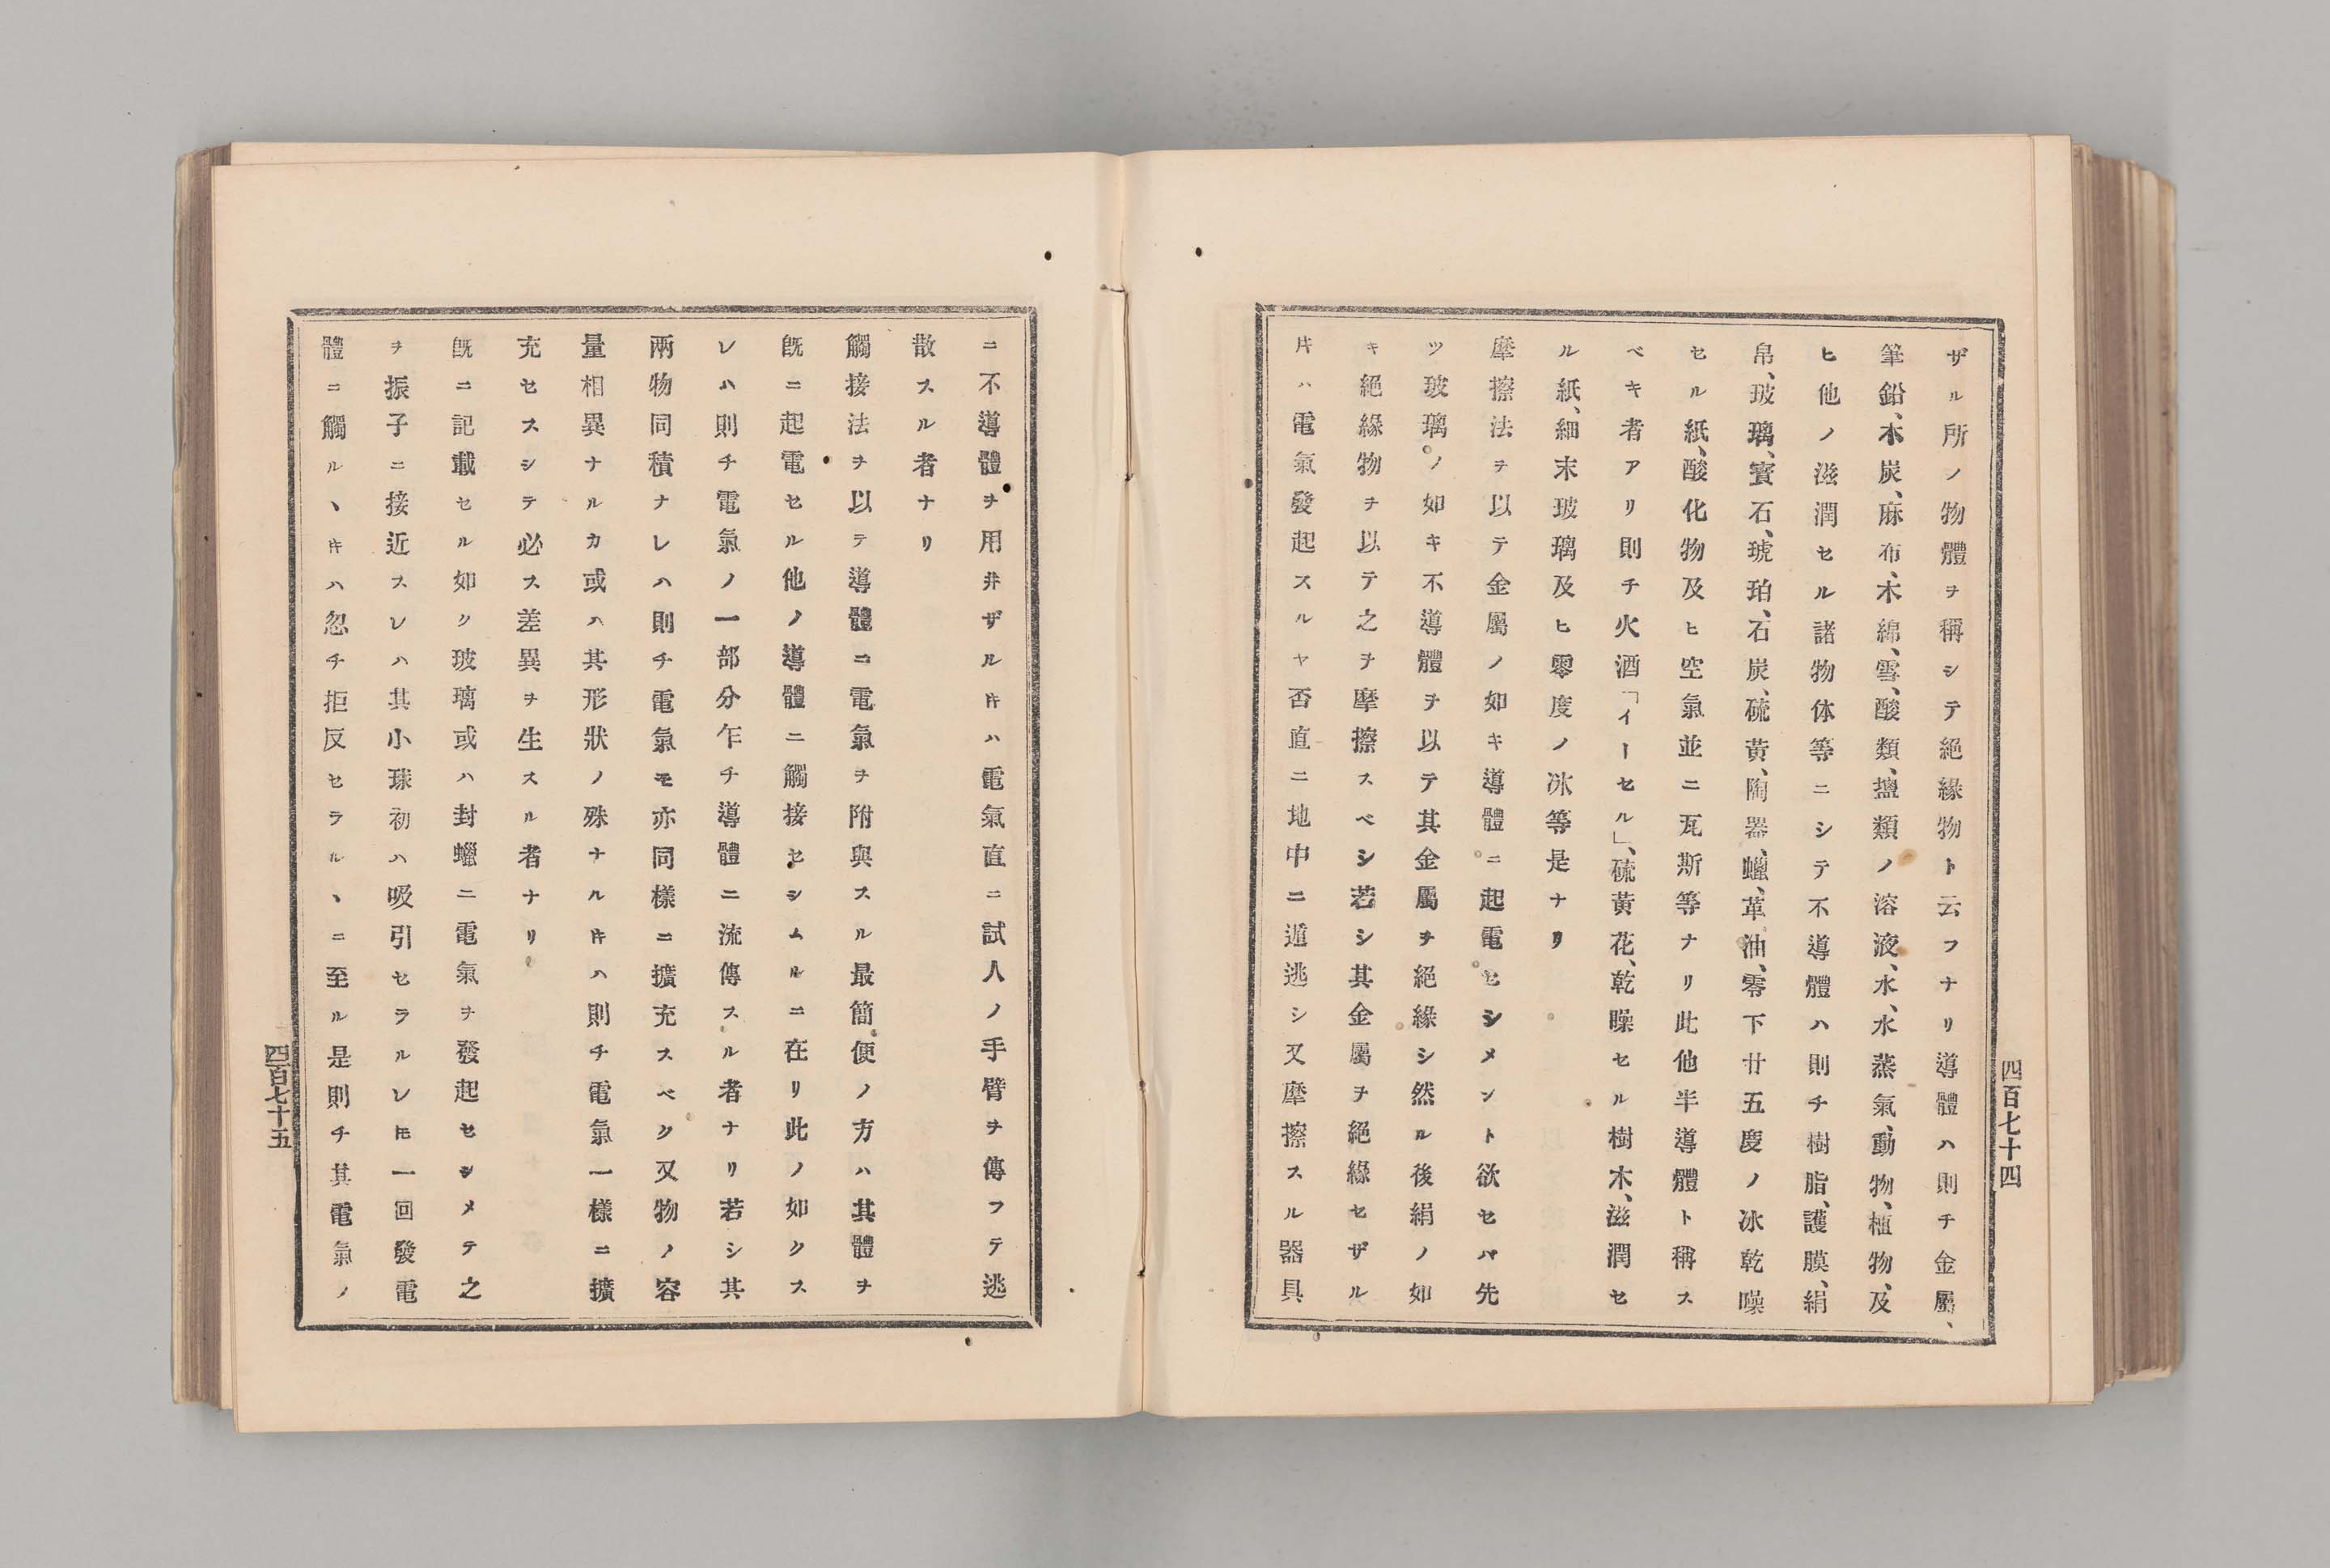 四百七十四
ザル所ノ物體ヲ稱シテ絕緣物ト云フナリ導體ハ則チ金屬、
筆鉛、木炭、麻布、木綿、雪、酸類、鹽類ノ溶液、水、水蒸氣、動物、植物、及
ヒ他ノ滋潤セル諸物体等ニシテ不導體ハ則チ樹脂、護膜、絹
帛、玻璃、寶石、琥珀、石炭、硫黃、陶器、蠟、革、油、零下廿五度ノ冰乾噪
セル紙、酸化物及ヒ空氣並ニ瓦斯等ナリ此他半導體ト稱ス
ベキ者アリ則チ火酒「イーセル」、硫黃花、乾噪セル樹木、滋潤セ
ル紙、細末玻璃及ヒ零度ノ冰等是ナリ
摩擦法ヲ以テ金屬ノ如キ導體ニ起電セシメント欲セハ先
ツ玻璃ノ如キ不導體ヲ以テ其金屬ヲ絕緣シ然ル後絹ノ如
キ絕緣物ヲ以テ之ヲ摩擦スベシ若シ其金屬ヲ絕緣セザル
片ハ電氣發起スルヤ否直ニ地中ニ遁逃シ又摩擦スル器具
ニ不導體ヲ用井ザル片ハ電氣直ニ試人ノ手臂ヲ傳フテ逃
散スル者ナリ
觸接法ヲ以テ導體ニ電氣ヲ附與スル最簡便ノ方ハ其體ヲ
旣ニ起電セル他ノ導體ニ觸接セシムルニ在リ此ノ如クス
レハ則チ電氣ノ一部分乍チ導體ニ流傳スル者ナリ若シ其
兩物同積ナレハ則チ電氣モ亦同樣ニ擴充スベク又物ノ容
量相異ナルカ或ハ其形狀ノ殊ナル片ハ則チ電氣一樣ニ擴
充セスシテ必ス差異ヲ生スル者ナリ
旣ニ記載セル如ク玻璃或ハ封蠟ニ電氣ヲ發起セシメテ之
ヲ振子ニ接近スレハ其小球初ハ吸引セラルレ𪜈一回發電
體ニ觸ルヽ片ハ忽チ拒反セラルヽニ至ル是則チ其電氣ノ
四百七十五